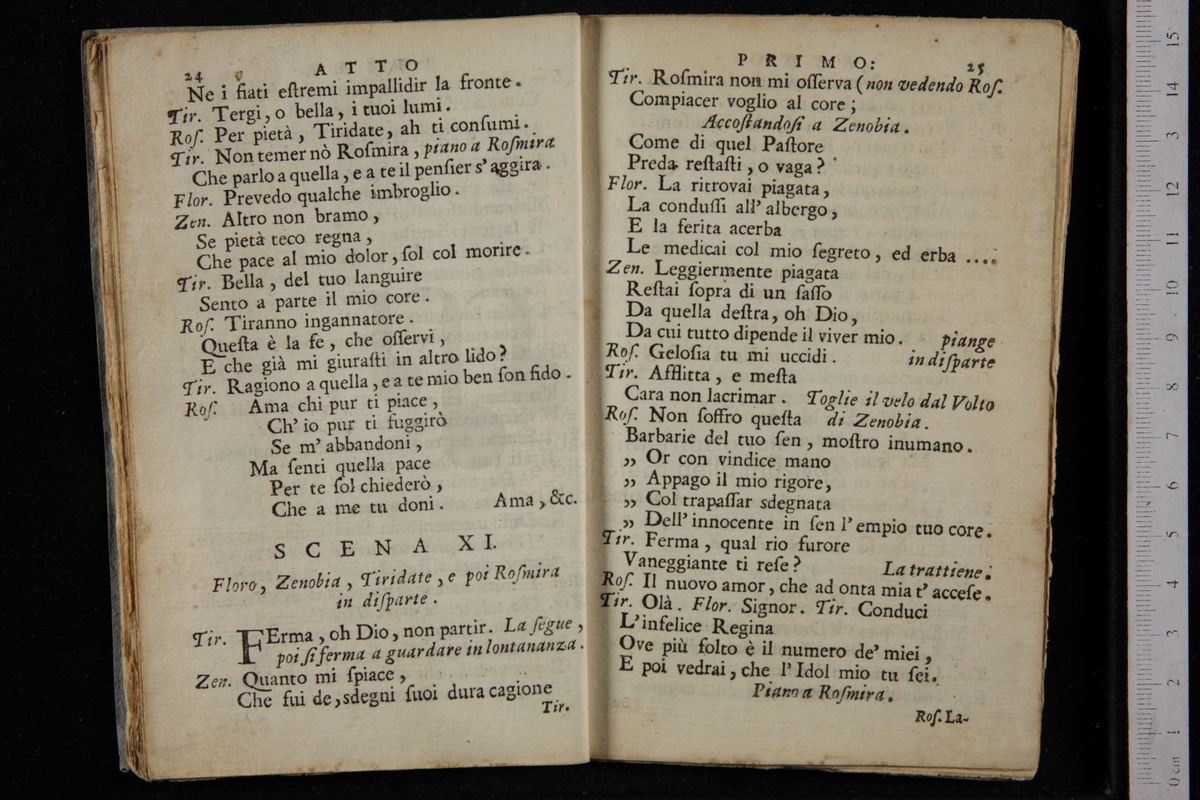 24 ATTO
Ne i fiati eſtremi impallidir la fronte.
Tir. Tergi, o bella, i tuoi lumi.
Roſ. Per pietà, Tiridate, ah ti conſumi.
Tir. Non temer nò Roſmira, piano a Roſmira
Che parlo a quella, e a te il penſier s' aggira.
Flor. Prevedo qualche imbroglio.
Zen. Altro non bramo,
Se pietà teco regna,
Che pace al mio dolor, ſol col morire.
Tir. Bella, del tuo languire
Sento a parte il mio core.
Roſ. Tiranno ingannatore.
Queſta è la fe, che oſſervi,
E che già mi giuraſti in altro lido?
Tir. Ragiono a quella, e a te mio ben ſon fido.
Roſ. Ama chi pur ti piace,
Ch' io pur ti fuggirò
Se m' abbandoni,
Ma ſenti quella pace
Per te ſol chiederò,
Che a me tu doni. Ama, &c.
SCENA XI.
Floro, Zenobia, Tiridate, e poi Roſmira
in diſparte.
Tir. FErma, oh Dio, non partir. La ſegue,
poi ſi ferma a guardare in lontananza.
Zen. Quanto mi ſpiace,
Che fui de, sdegni ſuoi dura cagione
Tir.
PRIMO: 25
Tir. Roſmira non mi oſſerva (non vedendo Roſ.
Compiacer voglio al core;
Accoſtandoſi a Zenobia.
Come di quel Paſtore
Preda reſtaſti, o vaga?
Flor. La ritrovai piagata,
La conduſſi all' albergo,
E la ferita acerba
Le medicai col mio ſegreto, ed erba ....
Zen. Leggiermente piagata
Reſtai ſopra di un ſaſſo
Da quella deſtra, oh Dio,
Da cui tutto dipende il viver mio. piange
Roſ. Geloſia tu mi uccidi. in diſparte
Tir. Afflitta, e meſta
Cara non lacrimar. Toglie il velo dal Volto
Roſ. Non ſoffro queſta di Zenobia.
Barbarie del tuo ſen, moſtro inumano.
„ Or con vindice mano
„ Appago il mio rigore,
„ Col trapaſſar sdegnata
„ Dell' innocente in ſen l' empio tuo core.
Tir. Ferma, qual rio furore
Vaneggiante ti reſe? La trattiene.
Roſ. Il nuovo amor, che ad onta mia t' acceſe.
Tir. Olà. Flor. Signor. Tir. Conduci
L' infelice Regina
Ove più folto è il numero de' miei,
E poi vedrai, che l' Idol mio tu ſei.
Piano a Roſmira.
Roſ. La-
15
14
13
12
11
10
9
8
7
6
5
4
3
2
1
0 cm